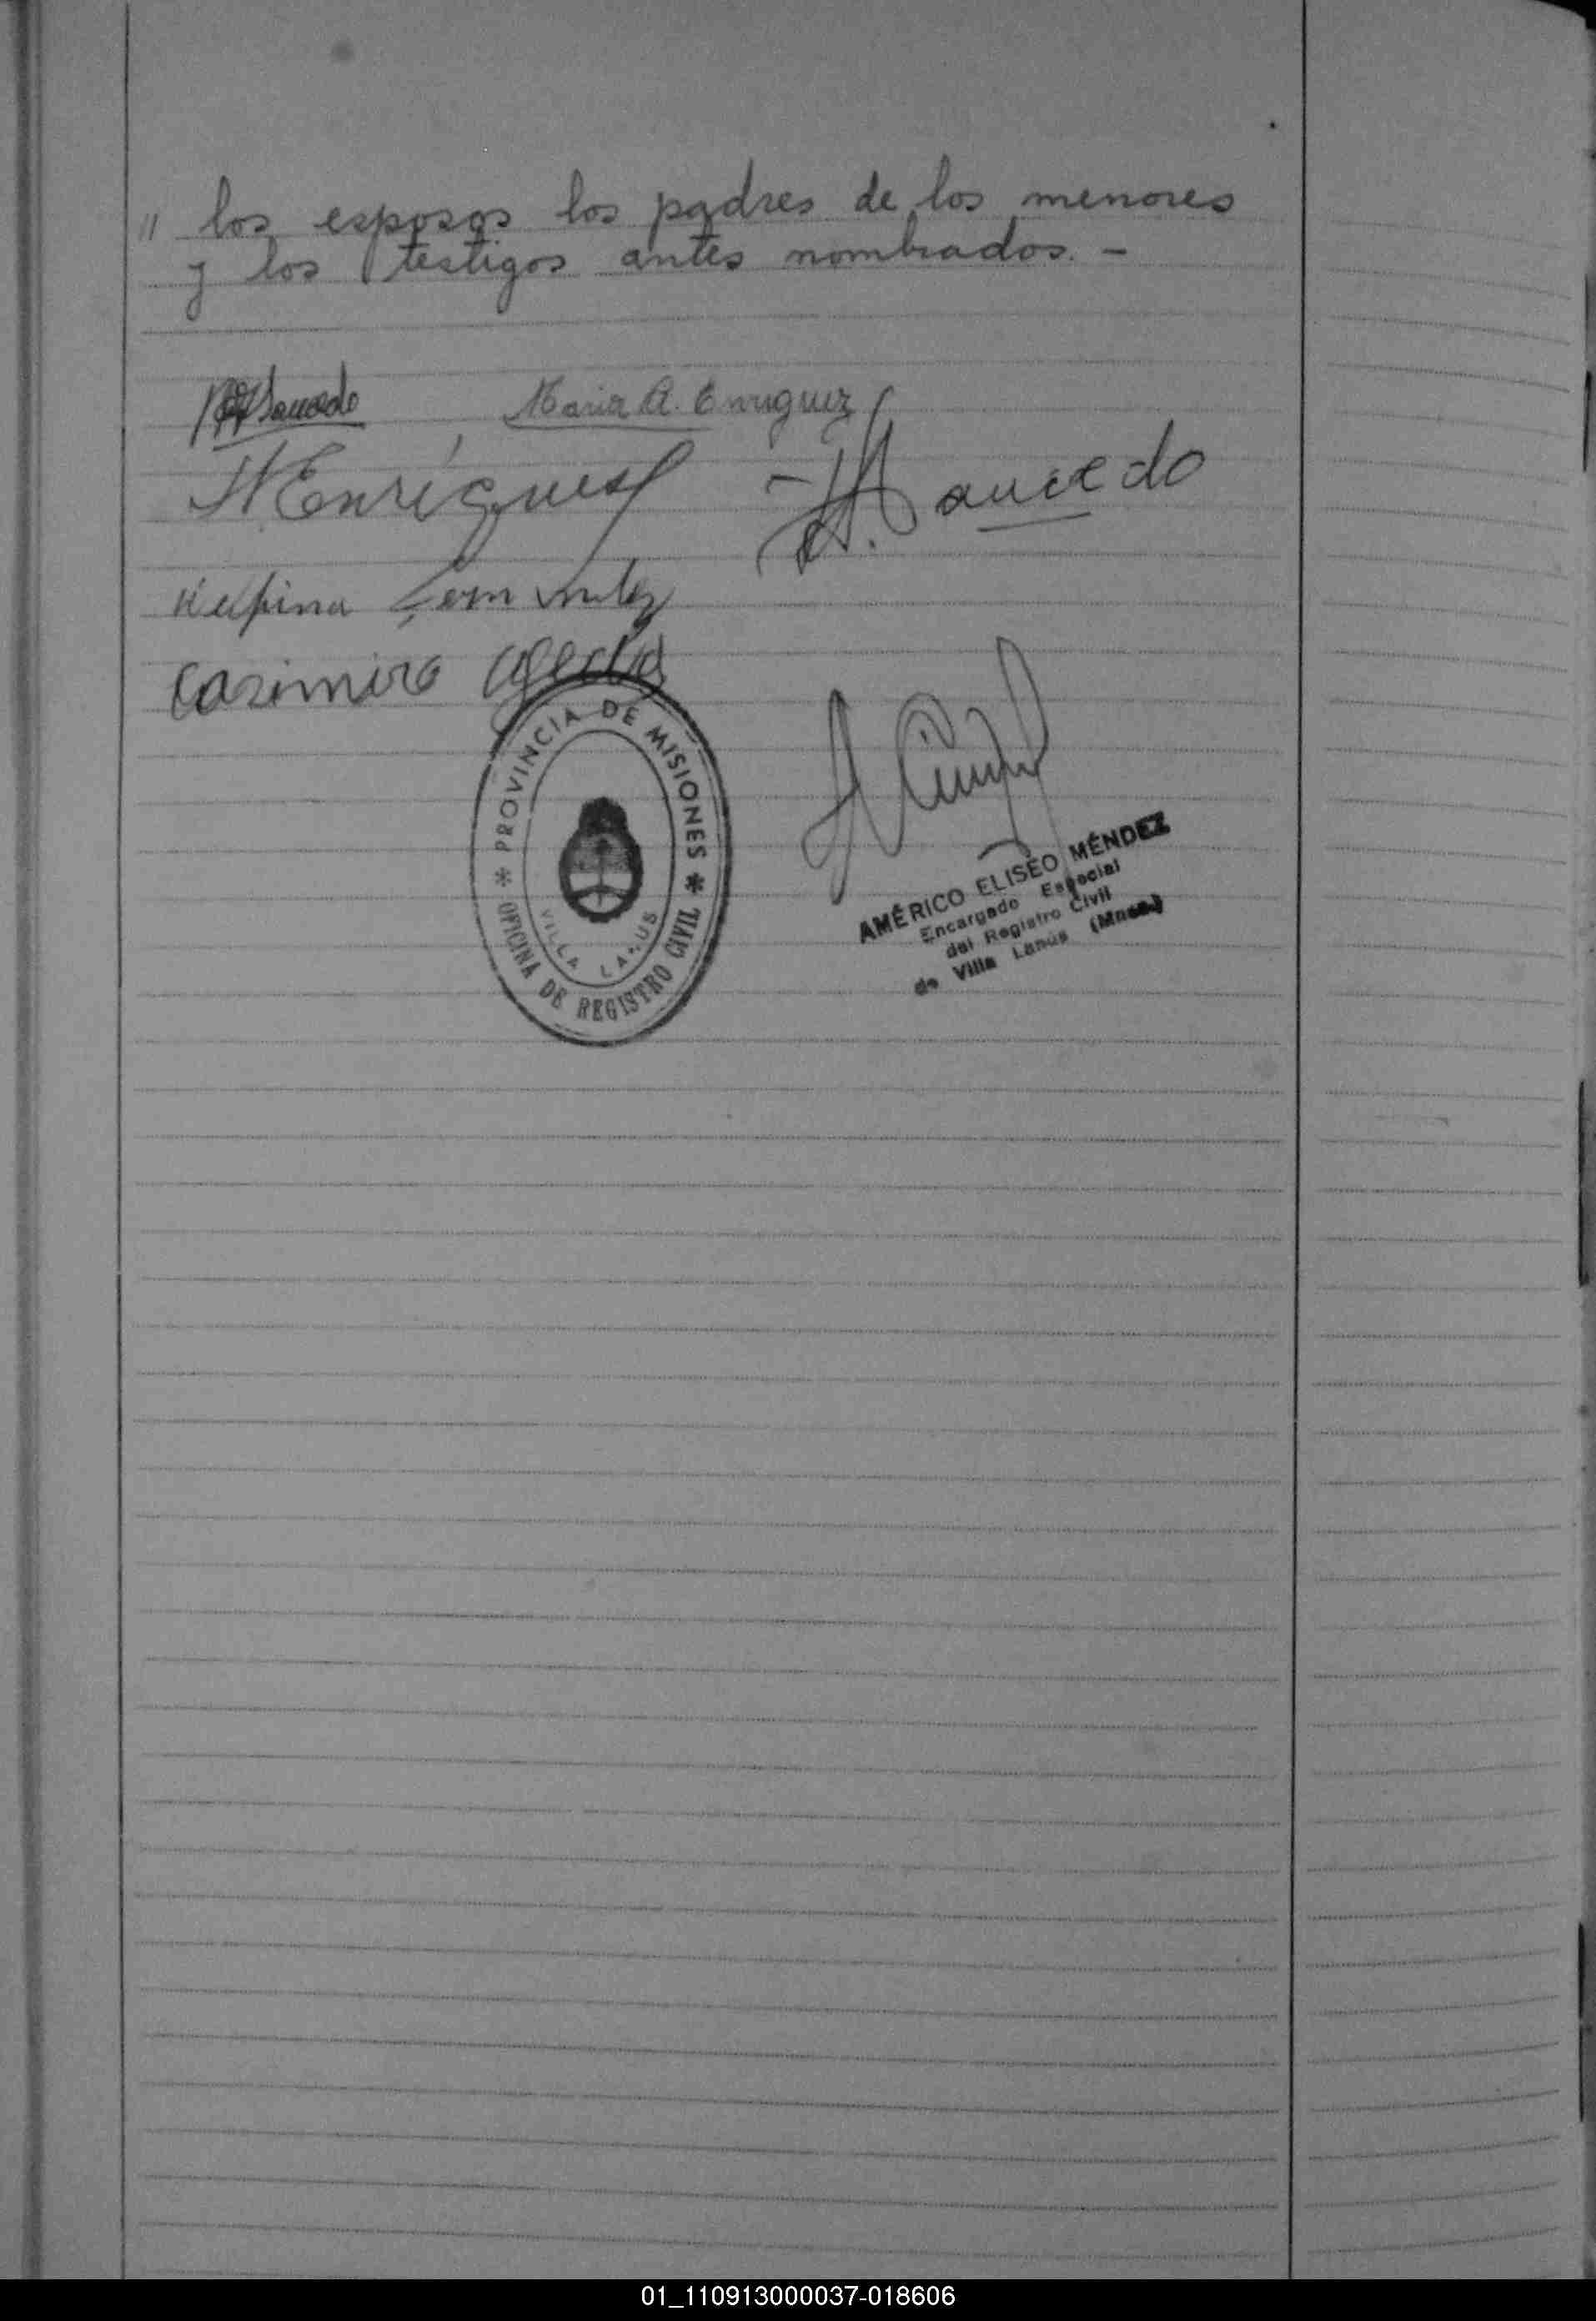 " los esposos los padres de los menores
y los testigos antes nombrados. -
Saucedo
Maria A. Enriquez
Enriquez
Saucedo
Casimiro
PROVINCIA DE MISIONES
VILLA LANUS
* OFICINA DE REGISTRO CIVIL *
AMÉRICO ELISÉO MÉNDEZ
Encargado Especial
del Registro Civil
de Villa Lanús (Mnes.)
01_110913000037-018606